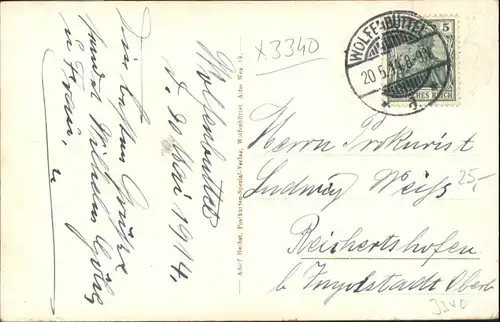 Wolfenbüttel
d. 20 Mai 1914.
Die besten Grüße
sendet Wilhelm
u Frau,
Adolf Herbst, Postkarten-Spezial-Verlag, Wolfenbüttel, Alter Weg
x3340
WOLFENBÜTTEL
20.5.14.8-9V.
5
DEUTSCHES REICH
Herrn Prokurist
Ludwig Weiss
25,-
Reichertshofen
b Ingolstadt Oberb
3340